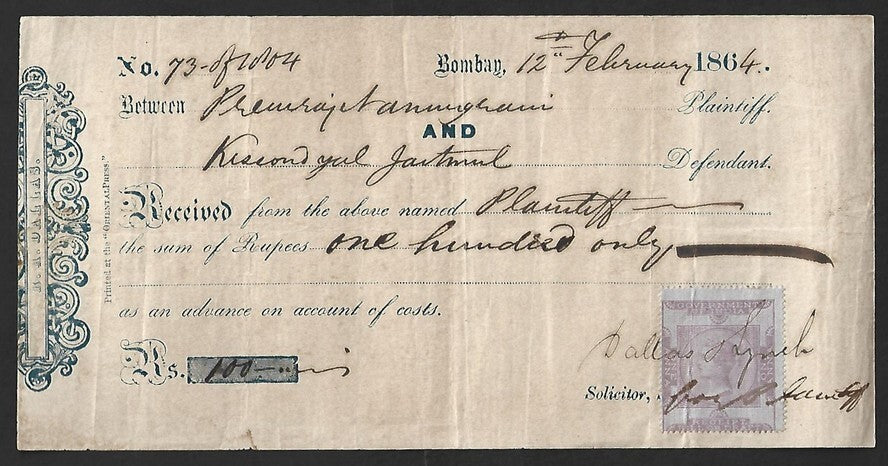 No. 73 of 1864
Bombay, 12th February 1864.
Between Premraj Nanugram Plaintiff.
AND
Kissondyal Jartmul Defendant.
Received from the above named Plaintiff
the sum of Rupees one hundred only
as an advance on account of costs.
Rs. 100
Dallas Lynch
Solicitor, for Plaintiff
GOVERNMENT
DALLAS.
Printed at the "ORIENTAL PRESS."